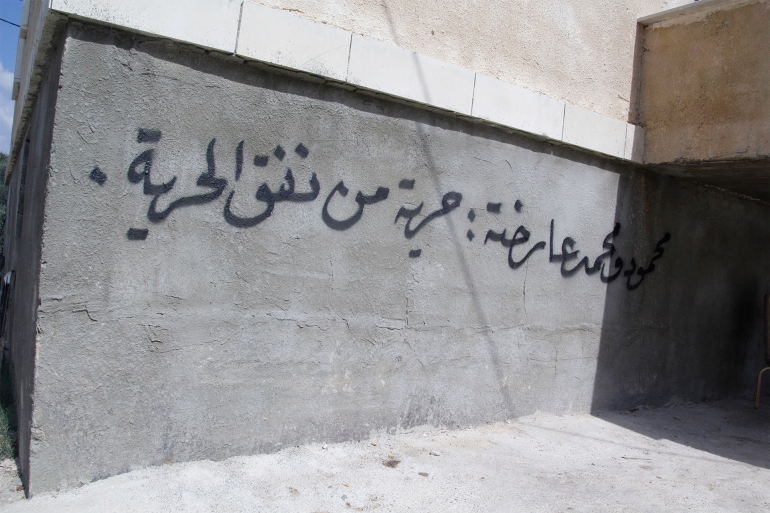 محمود ومحمد عارضة : حرية من نفق الحرية .